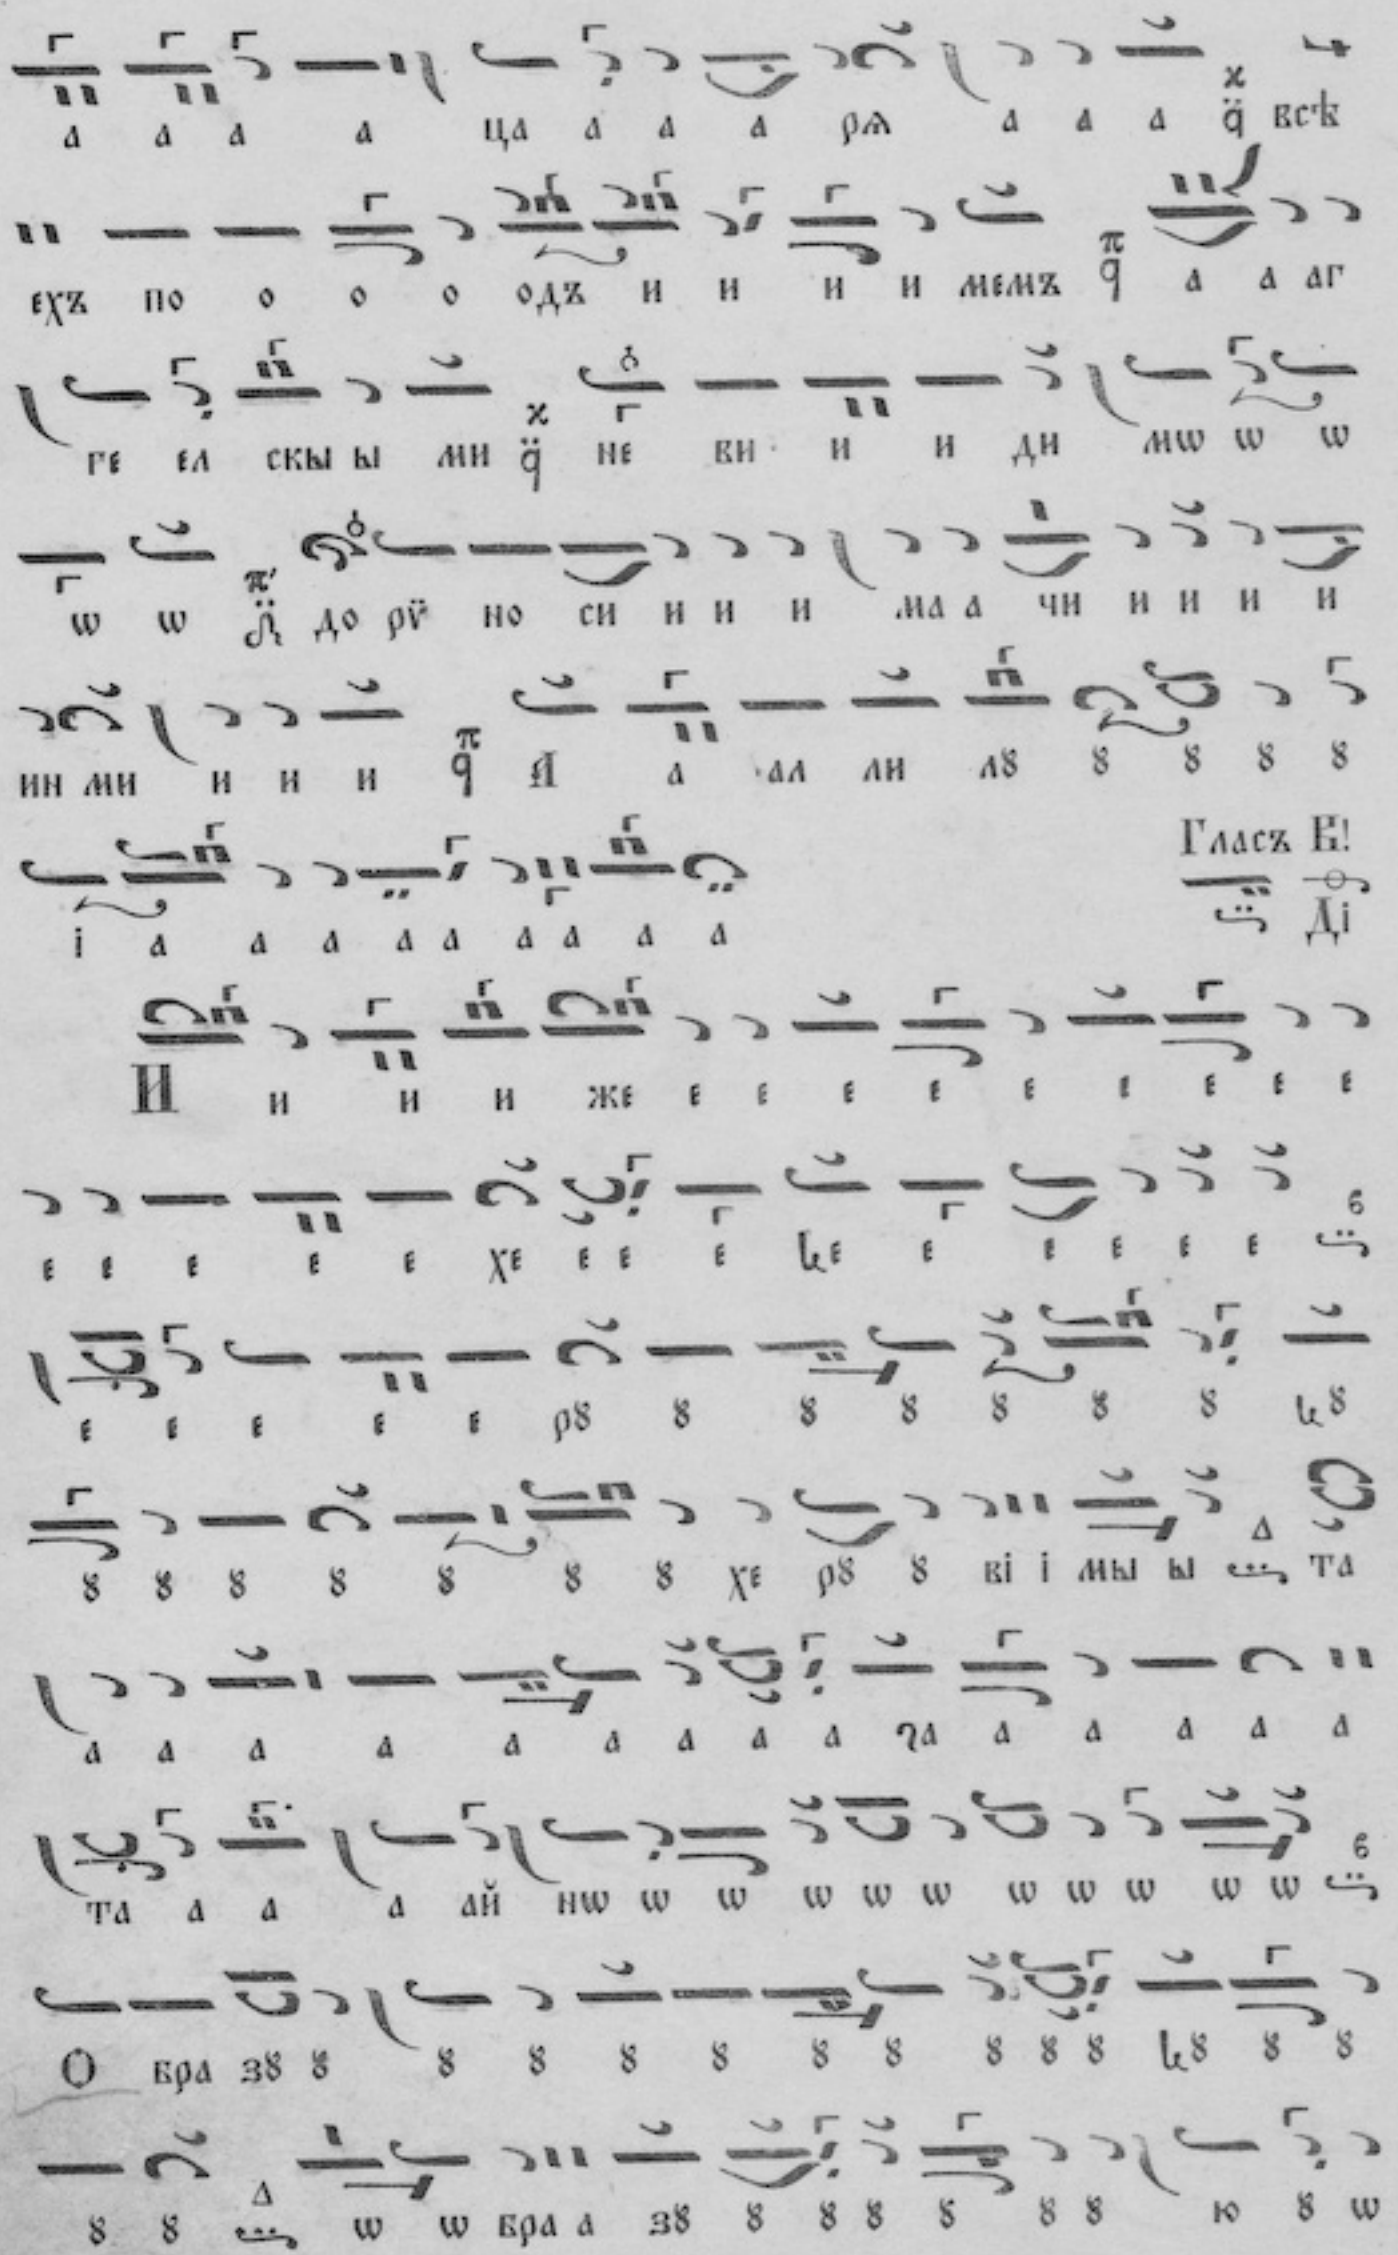 а а а а ца а а а рѧ а а а ϰ q̈ всѣ
ехъ по о о о одъ и и и и мемъ π q а а аг
ге ел скы ы ми ϰ q̈ не ви и и ди мѡ ѡ ѡ
ѡ ѡ π до рѷ но си и и и ма а чи и и и и
ин ми и и и π q А а ал ли лꙋ ꙋ ꙋ ꙋ ꙋ
і а а а а а а а а а
Гласъ В!
Ді
И и и и же е е е е е е е е е
е е е е е хе е е е е е е е е б
е е е е е рꙋ ꙋ ꙋ ꙋ ꙋ ꙋ ꙋ ꙋ
ꙋ ꙋ ꙋ ꙋ ꙋ ꙋ ꙋ хе рꙋ ꙋ ві і мы ы Δ та
а а а а а а а а а га а а а а а
та а а а ай нѡ ѡ ѡ ѡ ѡ ѡ ѡ ѡ ѡ ѡ ѡ б
О бра зꙋ ꙋ ꙋ ꙋ ꙋ ꙋ ꙋ ꙋ ꙋ ꙋ ꙋ ꙋ ꙋ ꙋ
ꙋ ꙋ Δ ѡ ѡ бра а зꙋ ꙋ ꙋ ꙋ ꙋ ꙋ ꙋ ю ꙋ ѡ